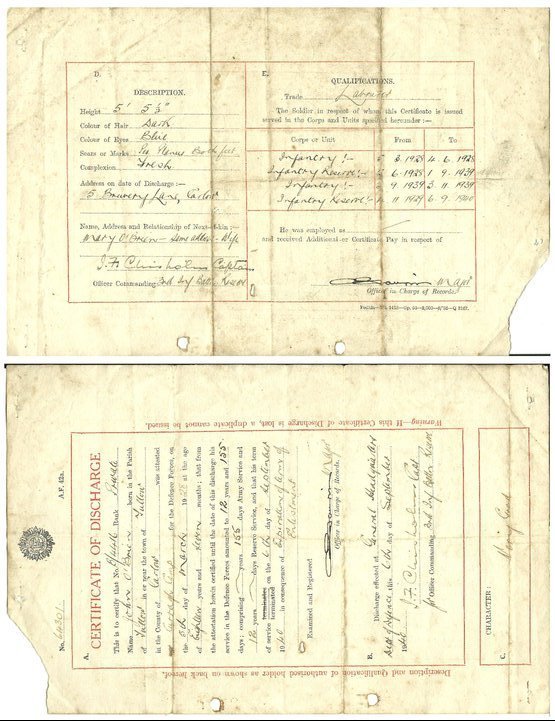 D.
DESCRIPTION.
Height 5' 5½"
Colour of Hair Dark
Colour of Eyes Blue
Scars or Marks Both feet
Complexion Fresh
Address on date of Discharge :—
5 Brewery Lane, Carlow
Name, Address and Relationship of Next-of-kin ;—
Mary O'Brien - Same address - Wife
J. F. Chisholm Captain
Officer Commanding 3rd Inf Battn Reserve
E.
QUALIFICATIONS.
Trade Labourer
The Soldier in respect of whom this Certificate is issued
served in the Corps and Units specified hereunder :—
Corps or Unit From To
Infantry :- 5 3. 1928 4. 6. 1928
Infantry Reserve :- 5 6. 1928 1. 9. 1939
Infantry :- 2 9. 1939 3. 11. 1939
Infantry Reserve :- 4 11. 1939 6. 9. 1940
He was employed as
and received Additional or Certificate Pay in respect of
Capt
Officer in Charge of Records.
No.
A.F. 42a.
A. CERTIFICATE OF DISCHARGE
This is to certify that No. Rank Private
Name John O'Brien born in the Parish
of Tullow in or near the town of Tullow
in the County of Carlow was attested
at Curragh Camp for the Defence Forces, on
the 5th day of March 1928 at the age
of Eighteen years and seven months; that from
the attestation herein certified until the date of this discharge his
service in the Defence Forces amounted to 12 years and 155
days; comprising years 155 days Army Service and
12 years days Reserve Service, and that his term
of service terminated on the 6th day of September
1940 in consequence of Expiration of term of
Enlistment
Examined and Registered
Officer in Charge of Records.
B.
Discharge effected at General Headquarters
Dept of Defence this 6th day of September
1940
J. F. Chisholm Capt
for Officer Commanding, 3rd Inf Battn Reserve
C.
CHARACTER : Very Good
Warning—If this Certificate of Discharge is lost, a duplicate cannot be issued.
Description and Qualification of authorised holder as shown on back hereof.